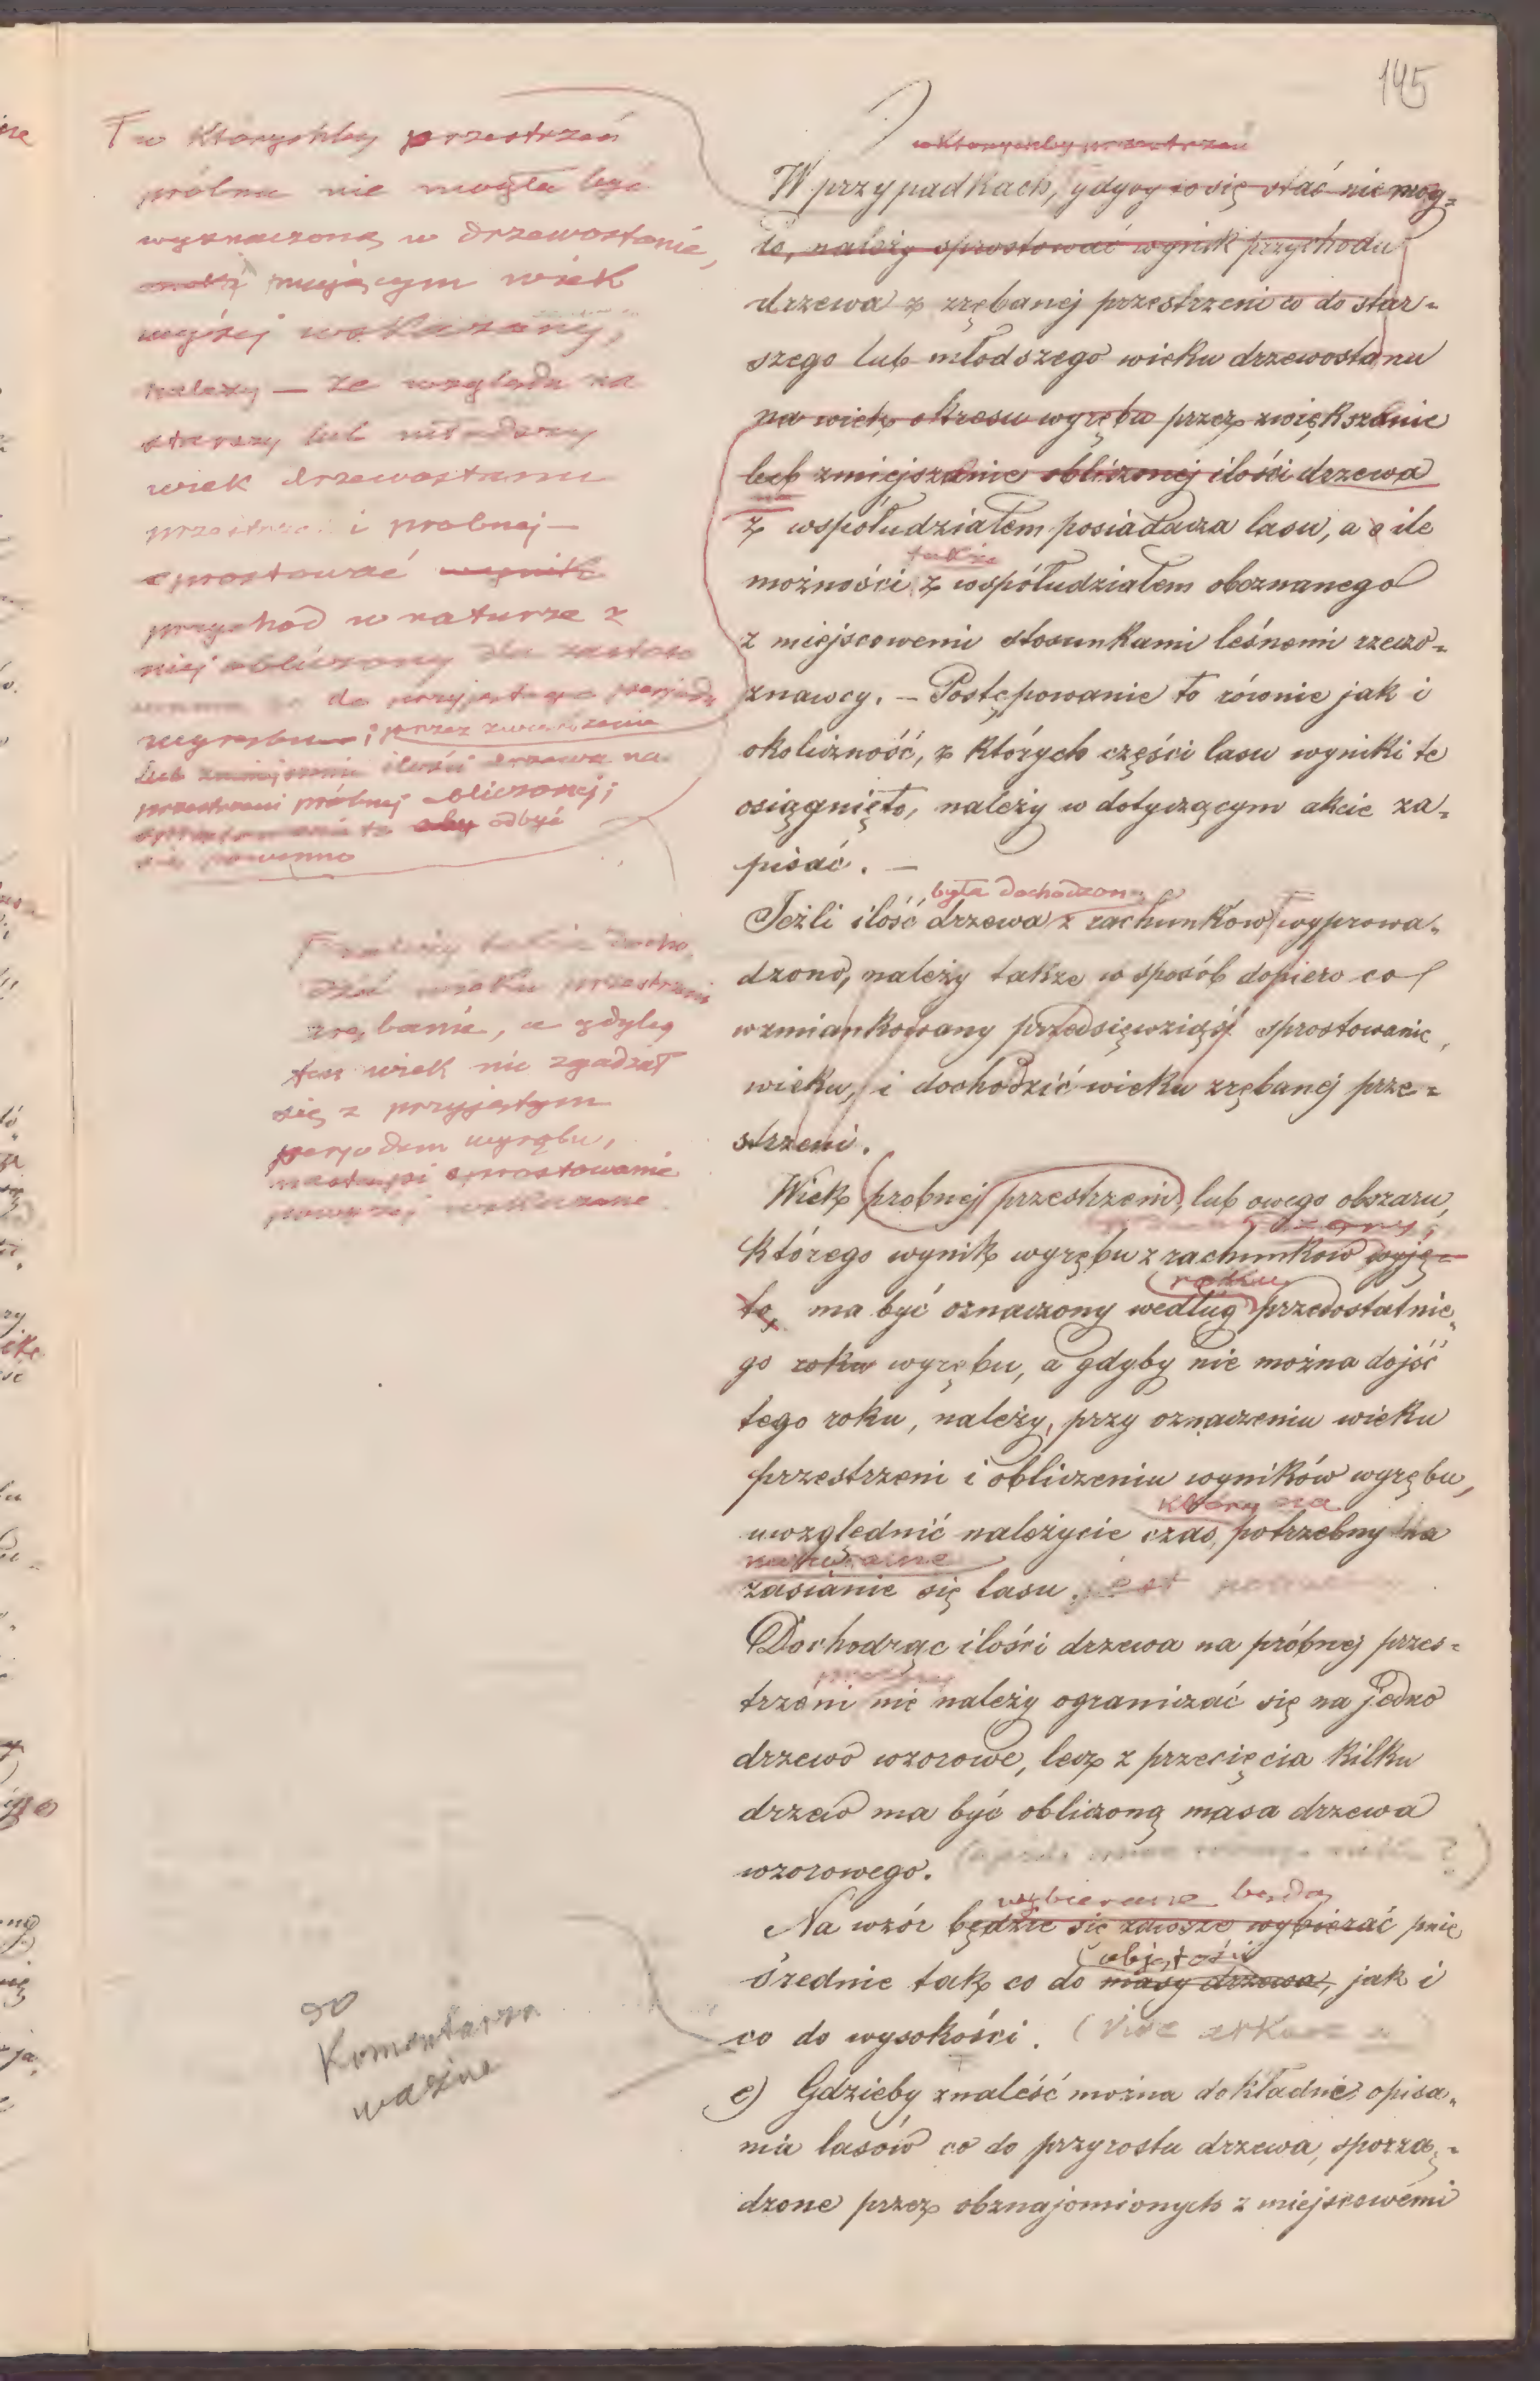 145
w którychby przestrzeń
W przypadkach, gdyby to się stać niemog-
ło, należy sprostować wynik przychodu
drzewa z zrębanej przestrzeni co do star-
szego lub młodszego wieku drzewostanu
na wiek okresu wyrębu przez zwiększanie
lub zmiejszanie obliczonej ilości drzewa
z współudziałem posiadacza lasu, a o ile
także
możności z współudziałem obeznanego
z miejscowemi stosunkami leśnemi rzeczo-
znawcy. — Postępowanie to równie jak i
okoliczność, z których części lasu wyniki te
osiągnięto, należy w dotyczącym akcie za-
pisać. —
była dochodzona
Jeżli ilość drzewa z rachunków wyprowa-
dzono, należy także w sposób dopiero co
wzmiankowany przedsięwziąść sprostowanie
wieku, i dochodzić wieku zrębanej prze-
strzeni.
Wiek probnej przestrzeni, lub owego obszaru,
którego wynik wyrębu z rachunków wyję-
roku
to, ma być oznaczony według przedostatnie-
go roku wyrębu, a gdyby nie można dojść
tego roku, należy, przy oznaczeniu wieku
przestrzeni i obliczeniu wyników wyrębu,
który na
uwzględnić należycie czas, potrzebny na
naturalne
zasianie się lasu. jest
Dochodząc ilości drzewa na próbnej przes-
trzeni nie należy ograniczać się na jedno
drzewo wzorowe, lecz z przecięcia kilku
drzew ma być obliczoną masa drzewa
wzorowego.
wybierane będą
Na wzór będzie się zawsze wybierać pnie
objętości
średnie tak co do masy drzewa, jak i
co do wysokości.
e) Gdzieby znaleść można dokładne opisa-
nia lasów co do przyrostu drzewa, sporzą-
dzone przez obznajomionych z miejscowemi
w którychby przestrzeń
próbna nie mogła być
wyznaczoną w drzewostanie,
mającym wiek
wyżej wskazany,
należy — ze względu na
starszy lub młodszy
wiek drzewostanu
przestrzeni probnej —
sprostować wynik
przychód w naturze z
niej obliczony dla
do przyjętego perjodu
wyrębu; przez zwiększenie
lub zmiejszenie ilości drzewa na
przestrzeni próbnej obliczonej;
sprostowanie to aby odbyć
się powinno
należy także docho-
dzić wieku przestrzeni
zrębanie, a gdyby
ten wiek nie zgadzał
się z przyjętym
perjodem wyrębu,
nastąpi sprostowanie
powyżej wskazane.
do
Komentarza
ważne